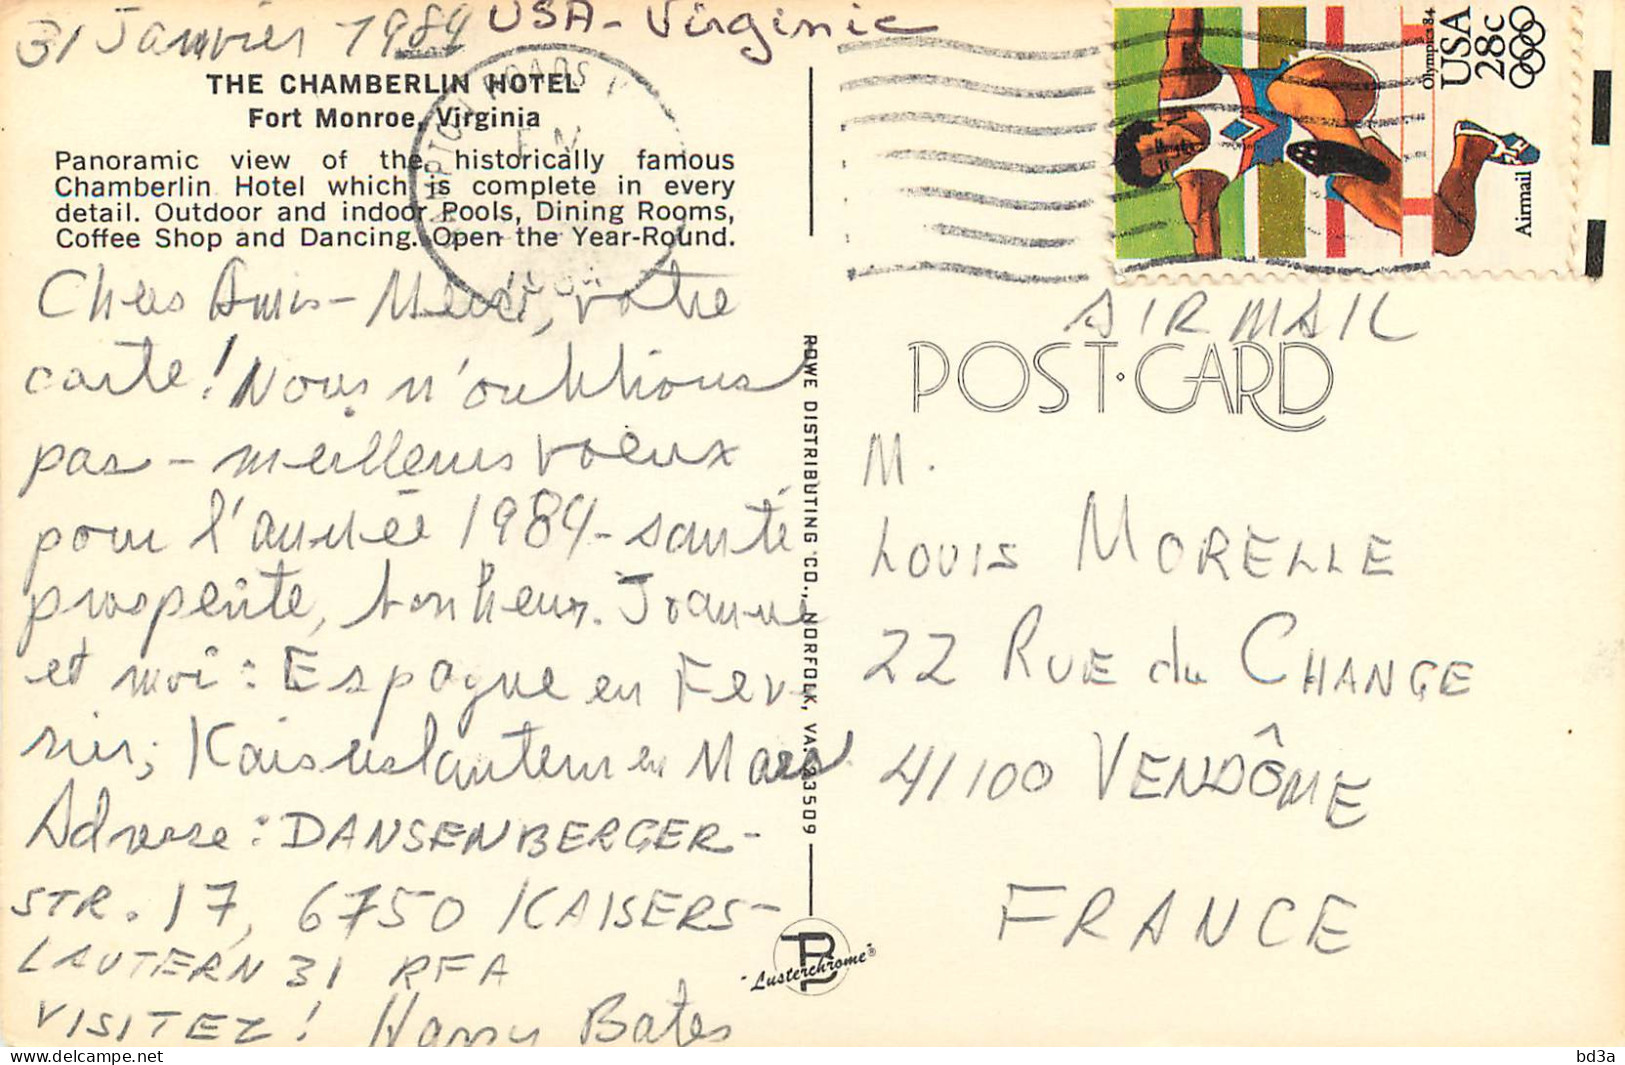 31 Janvier 1984 USA - Virginie
THE CHAMBERLIN HOTEL
Fort Monroe, Virginia
Panoramic view of the historically famous
Chamberlin Hotel which is complete in every
detail. Outdoor and indoor Pools, Dining Rooms,
Coffee Shop and Dancing. Open the Year-Round.
Chers Amis - Merci, votre
carte! Nous n'oublions
pas - meilleurs voeux
pour l'année 1984 - santé
prospérité, bonheur. Joanne
et moi: Espagne en Fev-
rier; Kaiserslautern en Mars
Adresse: DANSENBERGER-
STR. 17, 6750 KAISERS-
LAUTERN 31 RFA
VISITEZ! Harry Bates
ROWE DISTRIBUTING CO., NORFOLK, VA. 23509
Lusterchrome®
HAMPTON ROADS V
Olympics 84
USA
28c
Airmail
AIRMAIL
POST·CARD
M.
LOUIS MORELLE
22 RUE du CHANGE
41100 VENDÔME
FRANCE
www.delcampe.net
bd3a